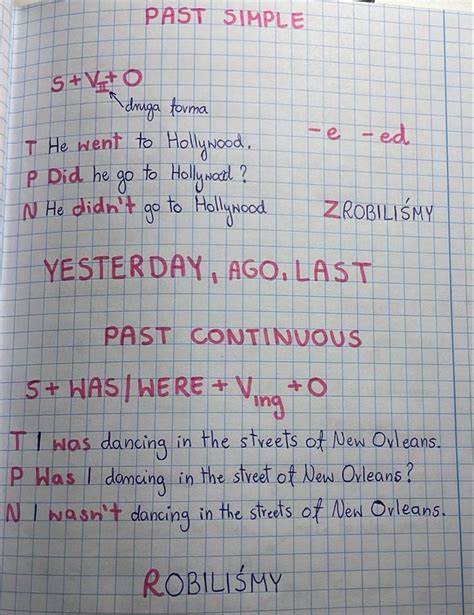 PAST SIMPLE
S + VII + O
druga forma
-e -ed
T He went to Hollywood.
P Did he go to Hollywood?
N He didn't go to Hollywood
ZROBILIŚMY
YESTERDAY, AGO, LAST
PAST CONTINUOUS
S + WAS/WERE + Ving + O
T I was dancing in the streets of New Orleans.
P Was I dancing in the street of New Orleans?
N I wasn't dancing in the streets of New Orleans.
ROBILIŚMY